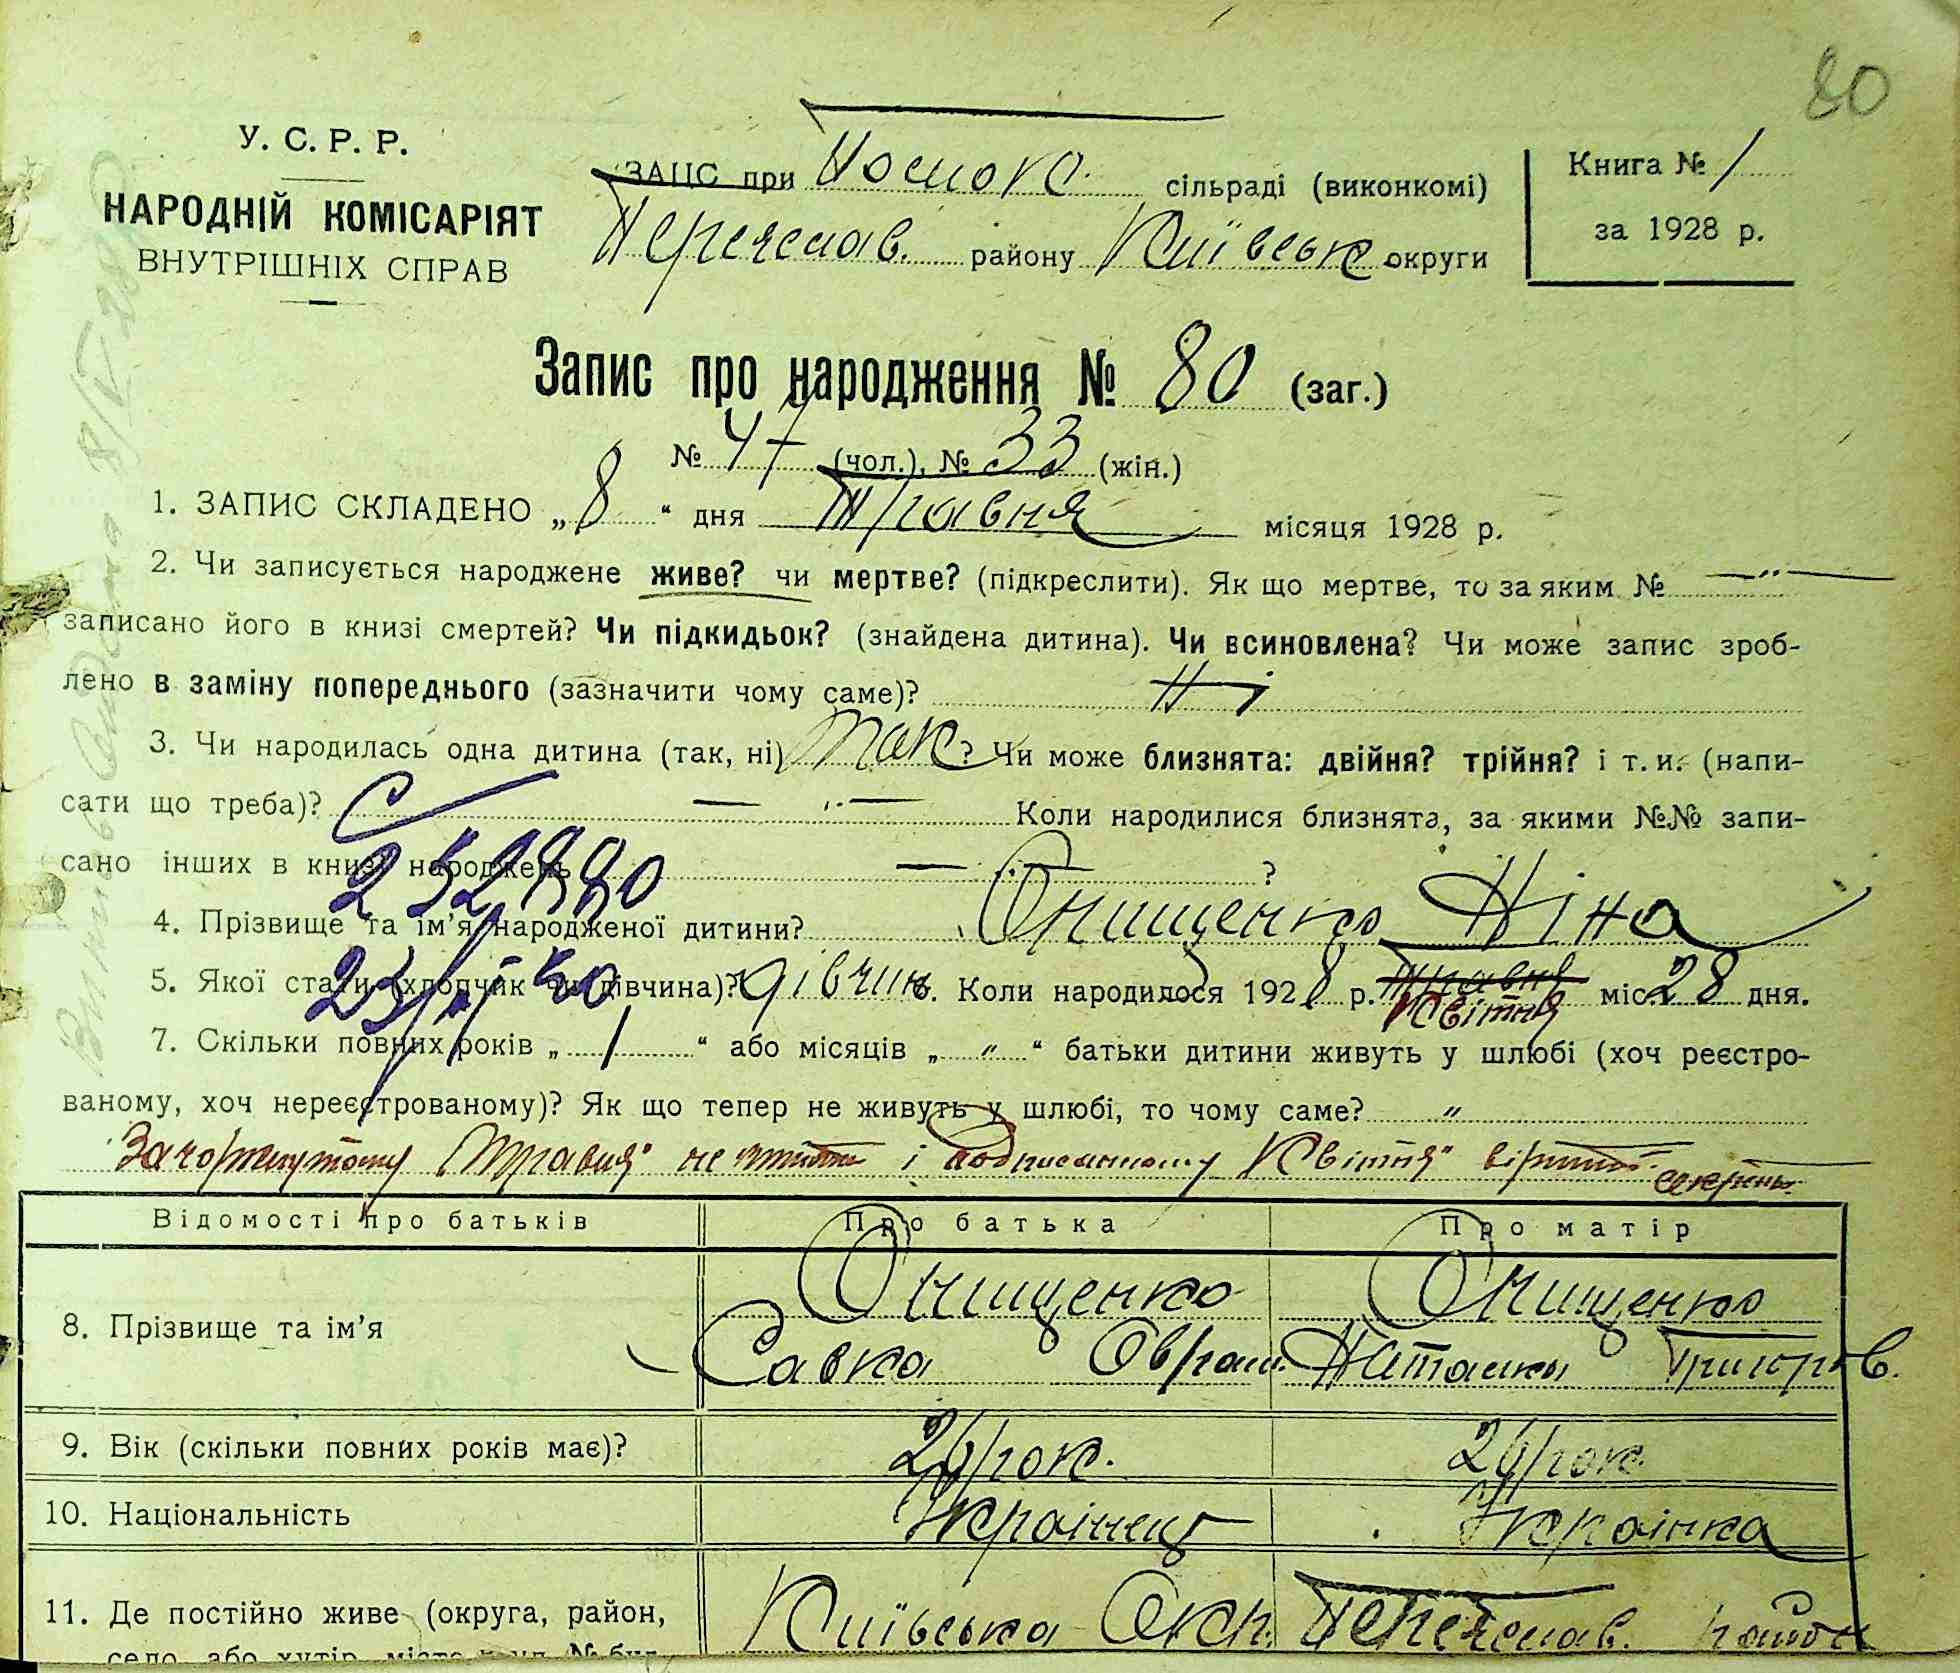 80
У. С. Р. Р.
НАРОДНІЙ КОМІСАРІЯТ
ВНУТРІШНІХ СПРАВ
ЗАЦС при сільраді (виконкомі)
Переяслав. району Київськ округи
Книга № 1
за 1928 р.
Запис про народження № 80 (заг.)
№ 47 (чол.), № 33 (жін.)
1. ЗАПИС СКЛАДЕНО „8“ дня Травня місяця 1928 р.
2. Чи записується народжене живе? чи мертве? (підкреслити). Як що мертве, то за яким № — " —
записано його в книзі смертей? Чи підкидьок? (знайдена дитина). Чи всиновлена? Чи може запис зроб-
лено в заміну попереднього (зазначити чому саме)? Ні
3. Чи народилась одна дитина (так, ні) так? Чи може близнята: двійня? трійня? і т. и. (напи-
сати що треба)? — " — Коли народилися близнята, за якими №№ запи-
сано інших в книзі народжень — ?
4. Прізвище та ім’я народженої дитини? Онищенко Ніна
5. Якої стати (хлопчик чи дівчина)? дівчин. 6. Коли народилося 1928 р. Травня Квітня міс. 28 дня.
7. Скільки повних років „1“ або місяців „ " “ батьки дитини живуть у шлюбі (хоч реєстро-
ваному, хоч нереєстрованому)? Як що тепер не живуть у шлюбі, то чому саме? "
Зачоркнутому "Травня" не і "Квітня"
Відомості про батьків Про батька Про матір
8. Прізвище та ім’я Онищенко Онищенко
Савка Оврам. Наталка Григоров.
9. Вік (скільки повних років має)? 26 рок. 26 рок.
10. Національність Українець Українка
11. Де постійно живе (округа, район, Київська Окр. Переяслав. район
село або хутір, місто